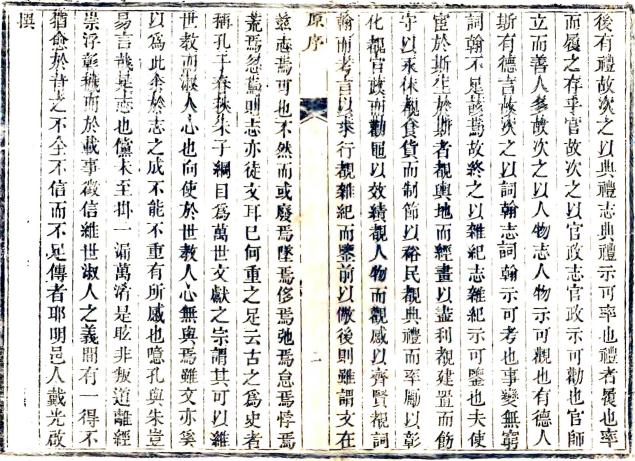 後有禮故次之以典禮志典禮示可率也禮者履也率
而履之存乎官故次之以官政志官政示可勸也官師
立而善人多故次之以人物志人物示可觀也有德人
斯有德言故次之以詞翰志詞翰示可考也事變無窮
詞翰不足該焉故終之以雜紀志雜紀示可鑒也夫使
宦於斯生於斯者觀輿地而經畫以盡利觀建置而飭
守以永休觀食貨而制節以裕民觀典禮而率勵以彰
化觀官政而勸黽以效績觀人物而觀感以齊賢觀詞
翰而考言以乘行觀雜紀而鑒前以儆後則雖謂文在
原序
二
茲志焉可也不然而或廢焉墜焉侈焉弛焉怠焉悖焉
荒焉忽焉則志亦徒文耳已何重之足云古之為史者
稱孔子春秋朱子綱目為萬世文獻之宗謂其可以維
世教而淑人心也向使於世教人心無與焉雖文亦奚
以為此余於志之成不能不重有所感也噫孔與朱豈
易言哉是志也儻未至掛一漏萬淆是眩非叛道離經
崇浮彰穢而於載事徵信維世淑人之義間有一得不
猶愈於昔之不全不信而不足傳者耶明邑人戴光啟
撰